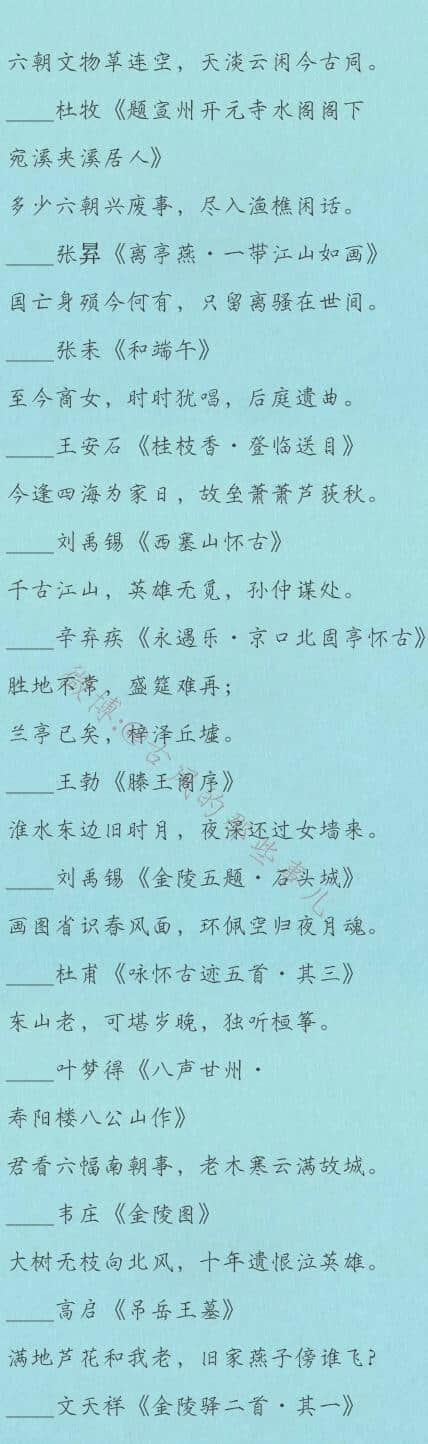 六朝文物草连空，天淡云闲今古同。
____杜牧《题宣州开元寺水阁阁下
宛溪夹溪居人》
多少六朝兴废事，尽入渔樵闲话。
____张昇《离亭燕·一带江山如画》
国亡身殒今何有，只留离骚在世间。
____张耒《和端午》
至今商女，时时犹唱，后庭遗曲。
____王安石《桂枝香·登临送目》
今逢四海为家日，故垒萧萧芦荻秋。
____刘禹锡《西塞山怀古》
千古江山，英雄无觅，孙仲谋处。
____辛弃疾《永遇乐·京口北固亭怀古》
胜地不常，盛筵难再；
兰亭已矣，梓泽丘墟。
____王勃《滕王阁序》
淮水东边旧时月，夜深还过女墙来。
____刘禹锡《金陵五题·石头城》
画图省识春风面，环佩空归夜月魂。
____杜甫《咏怀古迹五首·其三》
东山老，可堪岁晚，独听桓筝。
____叶梦得《八声甘州·
寿阳楼八公山作》
君看六幅南朝事，老木寒云满故城。
____韦庄《金陵图》
大树无枝向北风，十年遗恨泣英雄。
____高启《吊岳王墓》
满地芦花和我老，旧家燕子傍谁飞?
____文天祥《金陵驿二首·其一》
微博:@古风的那些事儿